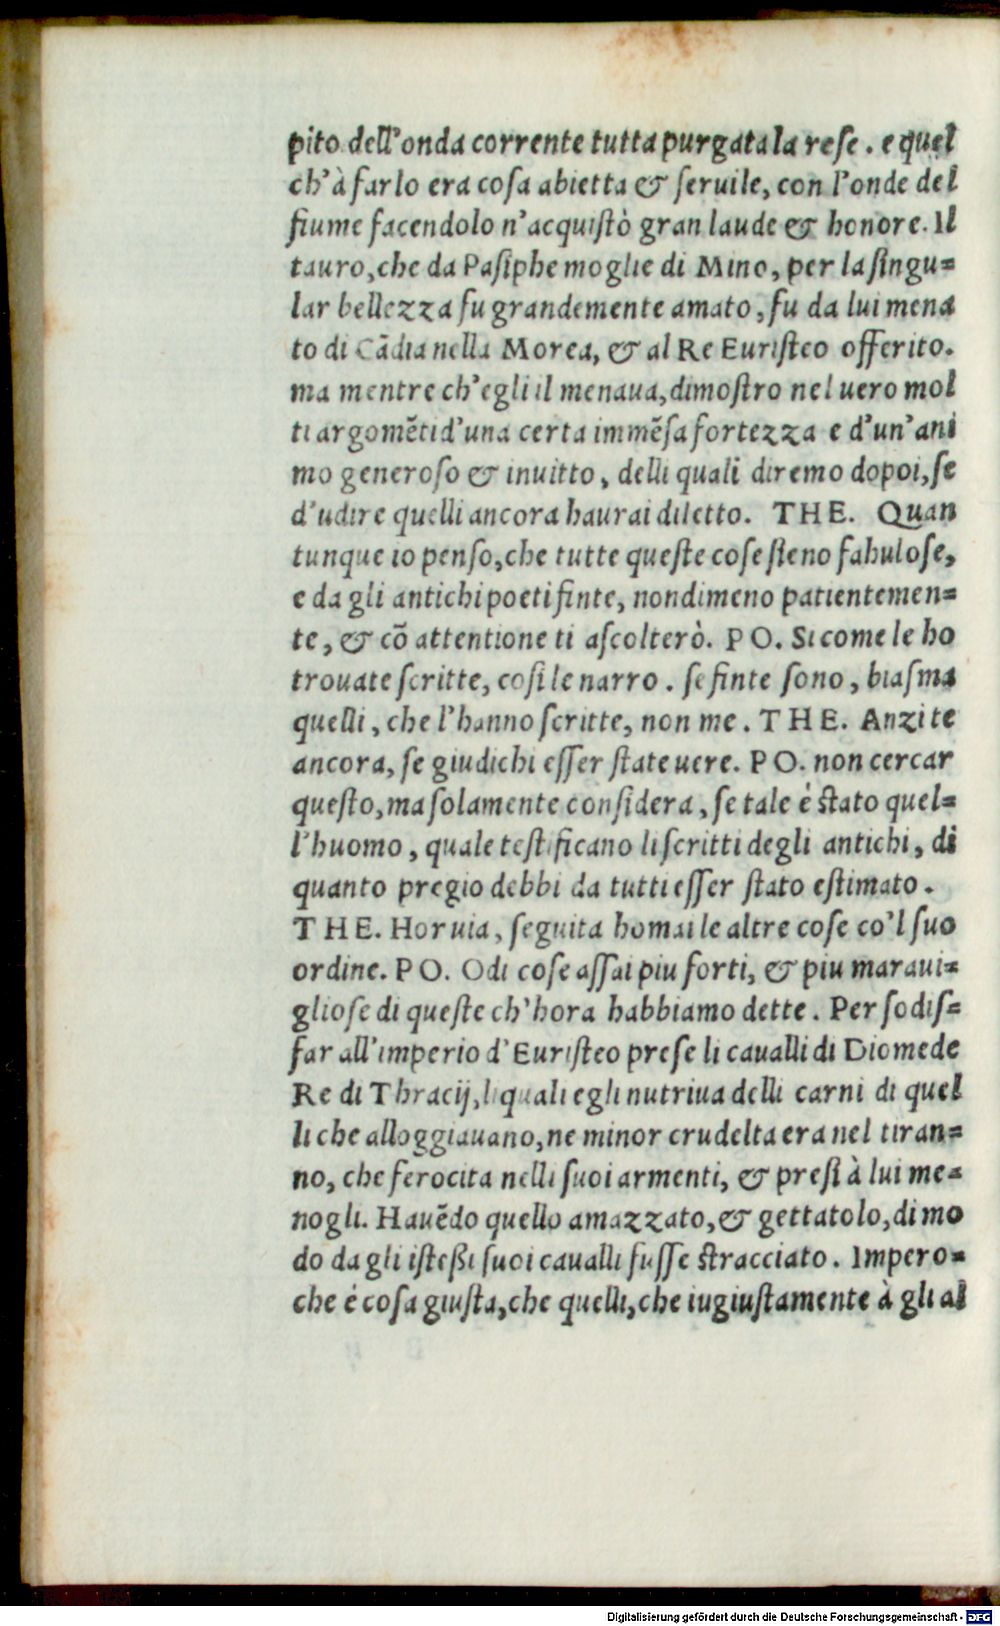 pito dell'onda corrente tutta purgata la rese. e quel
ch'à farlo era cosa abietta & seruile, con l'onde del
fiume facendolo n'acquistò gran laude & honore. Il
tauro, che da Pasiphe moglie di Mino, per la singu=
lar bellezza fu grandemente amato, fu da lui mena
to di Cādia nella Morea, & al Re Euristeo offerito.
ma mentre ch'egli il menaua, dimostro nel uero mol
ti argomēti d'una certa immēsa fortezza e d'un'ani
mo generoso & inuitto, delli quali diremo dopoi, se
d'udire quelli ancora haurai diletto. THE. Quan
tunque io penso, che tutte queste cose sieno fabulose,
e da gli antichi poeti finte, nondimeno patientemen=
te, & cō attentione ti ascolterò. PO. Si come le ho
trouate scritte, cosi le narro. se finte sono, biasma
quelli, che l'hanno scritte, non me. THE. Anzi te
ancora, se giudichi esser state uere. PO. non cercar
questo, ma solamente considera, se tale è stato quel=
l'huomo, quale testificano li scritti degli antichi, di
quanto pregio debbi da tutti esser stato estimato.
THE. Hor uia, seguita homai le altre cose co'l suo
ordine. PO. Odi cose assai piu forti, & piu maraui=
gliose di queste ch'hora habbiamo dette. Per sodis=
far all'imperio d'Euristeo prese li caualli di Diomede
Re di Thracij, li quali egli nutriua delli carni di quel
li che alloggiauano, ne minor crudelta era nel tiran=
no, che ferocita nelli suoi armenti, & presi à lui me=
nogli. Hauēdo quello amazzato, & gettatolo, di mo
do da gli isteßi suoi caualli fusse stracciato. Impero=
che è cosa giusta, che quelli, che iugiustamente à gli al
Digitalisierung gefördert durch die Deutsche Forschungsgemeinschaft - DFG